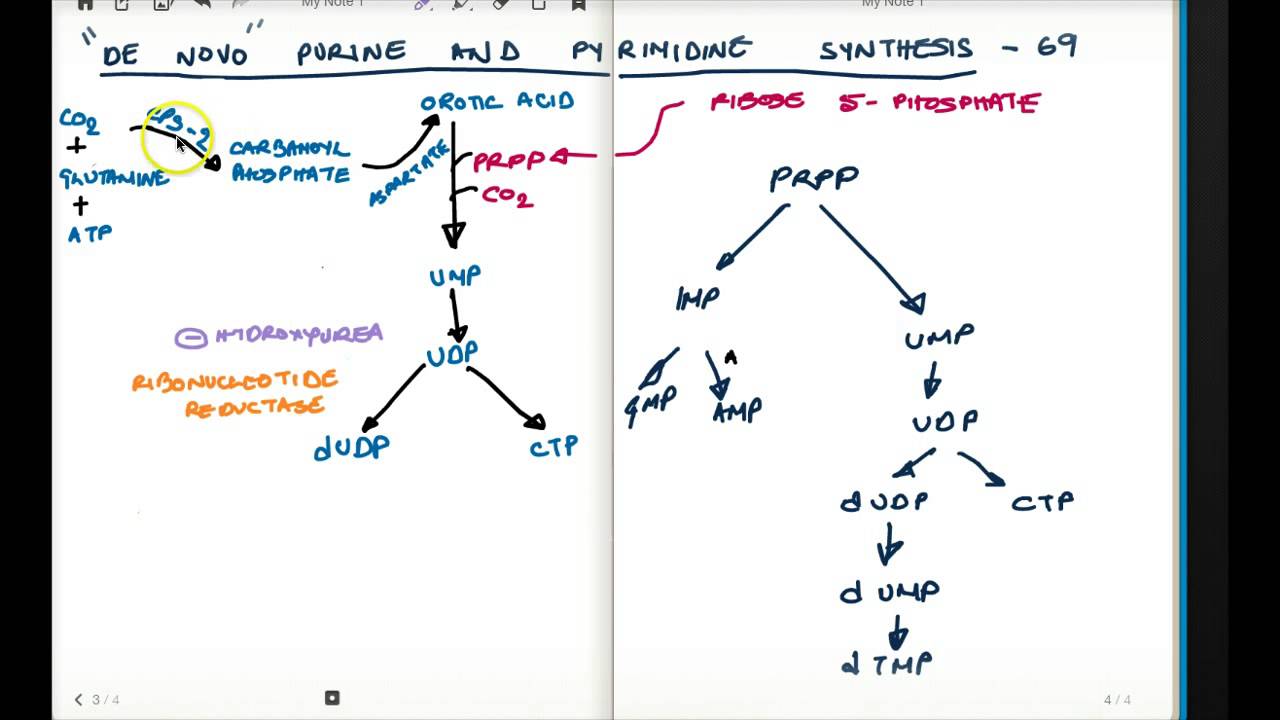 My Note 1
My Note 1
"DE NOVO" PURINE AND PYRIMIDINE SYNTHESIS - 69
CO2
+
GLUTAMINE
+
ATP
CPS-2
CARBAMOYL
PHOSPHATE
ASPARTATE
OROTIC ACID
PRPP
CO2
UMP
UDP
- HYDROXYUREA
RIBONUCLEOTIDE
REDUCTASE
dUDP
CTP
RIBOSE 5-PHOSPHATE
PRPP
IMP
UMP
A
GMP
AMP
UDP
dUDP
CTP
dUMP
dTMP
3 / 4
4 / 4